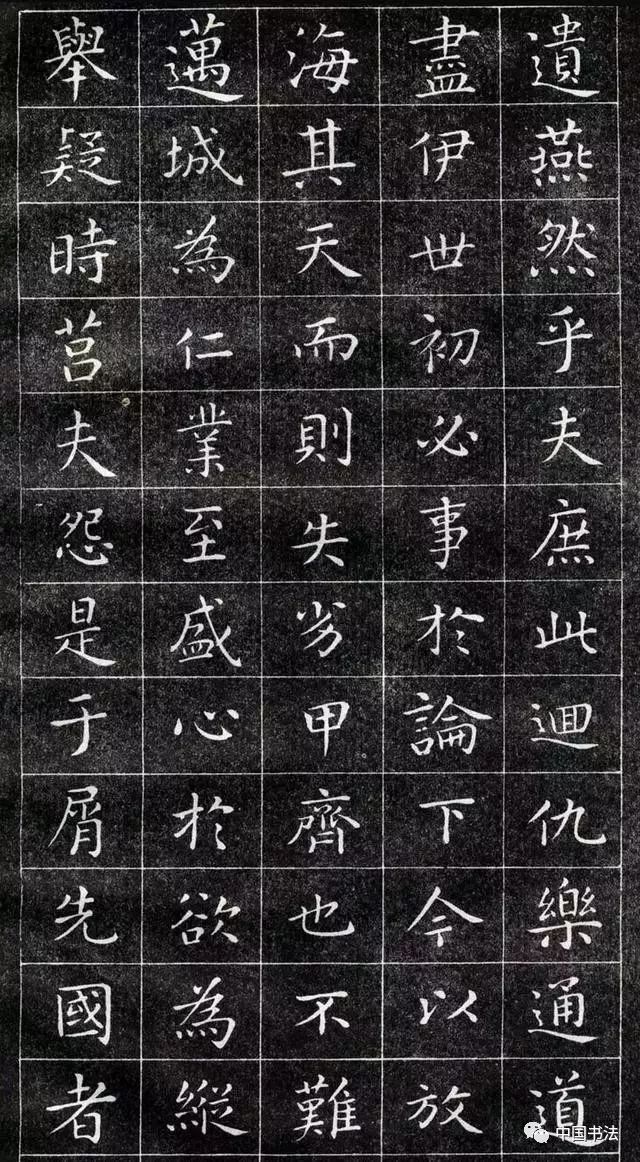 遺燕然乎夫庶此迴仇樂通道
盡伊世初必事於論下今以放
海其天而則失劣甲齊也不難
邁城為仁業至盛心於欲為縱
舉疑時莒夫怨是于屑先國者
中国书法